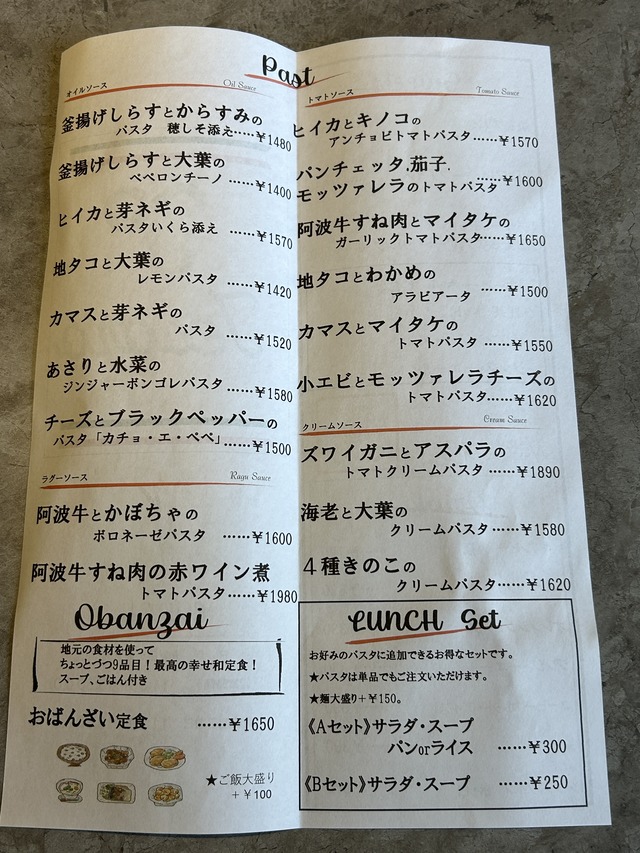 Past
オイルソース
Oil Sauce
釜揚げしらすとからすみの
パスタ 穂しそ添え‥‥￥1480
釜揚げしらすと大葉の
ペペロンチーノ ……￥1400
ヒイカと芽ネギの
パスタいくら添え ……￥1570
地タコと大葉の
レモンパスタ ……￥1420
カマスと芽ネギの
パスタ ……￥1520
あさりと水菜の
ジンジャーボンゴレパスタ ……￥1580
チーズとブラックペッパーの
パスタ「カチョ・エ・ペペ」……￥1500
ラグーソース
Ragu Sauce
阿波牛とかぼちゃの
ボロネーゼパスタ ……￥1600
阿波牛すね肉の赤ワイン煮
トマトパスタ ……￥1980
Obanzai
地元の食材を使って
ちょっとづつ9品目！最高の幸せ和定食！
スープ、ごはん付き
おばんざい定食 ……￥1650
★ご飯大盛り
＋￥100
トマトソース
Tomato Sauce
ヒイカとキノコの
アンチョビトマトパスタ……￥1570
パンチェッタ.茄子.
モッツァレラのトマトパスタ ……￥1600
阿波牛すね肉とマイタケの
ガーリックトマトパスタ……￥1650
地タコとわかめの
アラビアータ ……￥1500
カマスとマイタケの
トマトパスタ ……￥1550
小エビとモッツァレラチーズの
トマトパスタ……￥1620
クリームソース
Cream Sauce
ズワイガニとアスパラの
トマトクリームパスタ ……￥1890
海老と大葉の
クリームパスタ ……￥1580
４種きのこの
クリームパスタ……￥1620
LUNCH Set
お好みのパスタに追加できるお得なセットです。
★パスタは単品でもご注文いただけます。
★麺大盛り＋￥150。
《Aセット》サラダ・スープ
パンorライス ……￥300
《Bセット》サラダ・スープ ……￥250